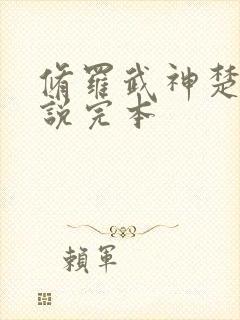 脩羅武神楚
說完本
賴軍